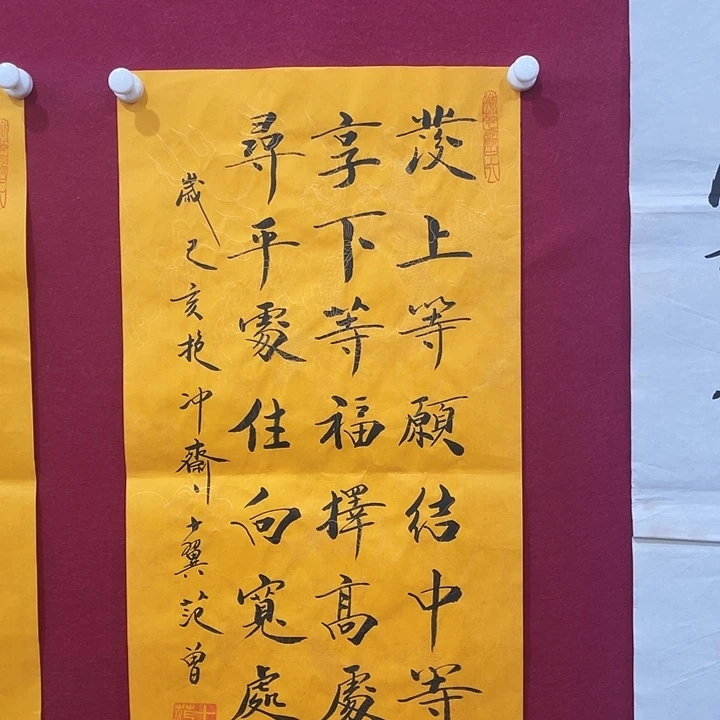 發上等願結中等
享下等福擇高處
尋平處住向寬處
歲己亥抱冲齋十翼范曾